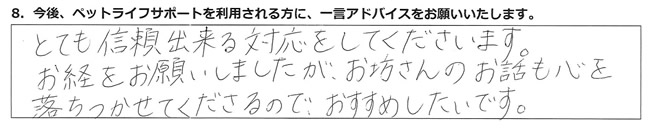 8. 今後、ペットライフサポートを利用される方に、一言アドバイスをお願いいたします。
とても信頼出来る対応をしてくださいます。
お経をお願いしましたが、お坊さんのお話も心を
落ちつかせてくださるので、おすすめしたいです。